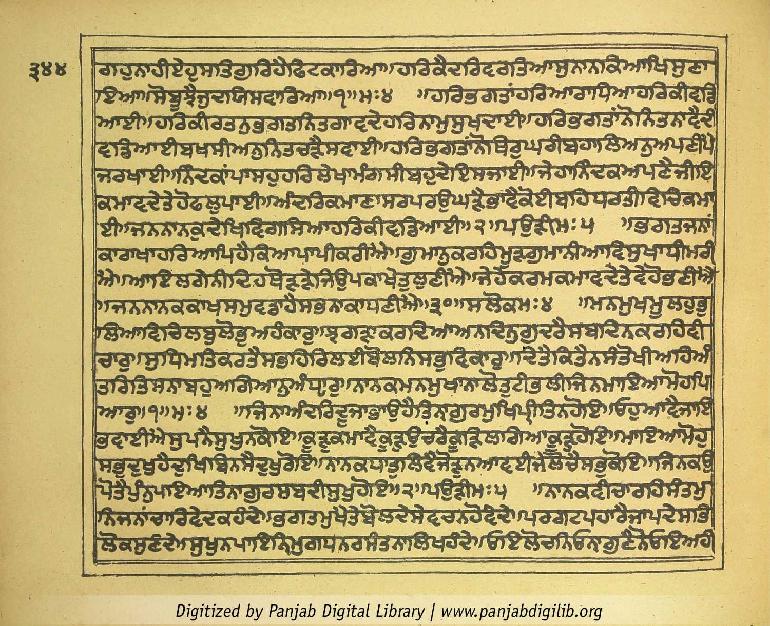 ੩੪੪
ਗਹੁ ਨਾਹੀ ਏਹੁ ਸਤਿਗੁਰਿ ਹੈ ਫਿਟਕਾਰਿਆ ॥ ਹਰਿ ਕੈ ਦਰਿ ਵਰਤਿਆ ਸੁ ਨਾਨਕਿ ਆਖਿ ਸੁਣਾ
ਇਆ ॥ ਸੋ ਬੂਝੈ ਜੁ ਦਯਿ ਸਵਾਰਿਆ ॥੧॥ ਮਃ ੪ ॥ ਹਰਿ ਭਗਤਾਂ ਹਰਿ ਆਰਾਧਿਆ ਹਰਿ ਕੀ ਵਡਿ
ਆਈ ॥ ਹਰਿ ਕੀਰਤਨੁ ਭਗਤ ਨਿਤ ਗਾਵਦੇ ਹਰਿ ਨਾਮੁ ਸੁਖਦਾਈ ॥ ਹਰਿ ਭਗਤਾਂ ਨੋ ਨਿਤ ਨਾਵੈ ਦੀ
ਵਡਿਆਈ ਬਖਸੀਅਨੁ ਨਿਤ ਚੜੈ ਸਵਾਈ ॥ ਹਰਿ ਭਗਤਾਂ ਨੋ ਥਿਰੁ ਘਰੀ ਬਹਾਲਿਅਨੁ ਅਪਣੀ ਪੈ
ਜ ਰਖਾਈ ॥ ਨਿੰਦਕਾਂ ਪਾਸਹੁ ਹਰਿ ਲੇਖਾ ਮੰਗਸੀ ਬਹੁ ਦੇਇ ਸਜਾਈ ॥ ਜੇਹਾ ਨਿੰਦਕ ਅਪਣੈ ਜੀਇ
ਕਮਾਵਦੇ ਤੇਹੋ ਫਲੁ ਪਾਈ ॥ ਅੰਦਰਿ ਕਮਾਣਾ ਸਰਪਰ ਉਘੜੈ ਭਾਵੈ ਕੋਈ ਬਹਿ ਧਰਤੀ ਵਿਚਿ ਕਮਾ
ਈ ॥ ਜਨ ਨਾਨਕੁ ਦੇਖਿ ਵਿਗਸਿਆ ਹਰਿ ਕੀ ਵਡਿਆਈ ॥੨॥ ਪਉੜੀ ਮਃ ੫ ॥ ਭਗਤ ਜਨਾਂ
ਕਾ ਰਾਖਾ ਹਰਿ ਆਪਿ ਹੈ ਕਿਆ ਪਾਪੀ ਕਰੀਐ ॥ ਗੁਮਾਨੁ ਕਰਹਿ ਮੂੜ ਗੁਮਾਨੀਆ ਵਿਸੁ ਖਾਧੀ ਮਰੀ
ਐ ॥ ਆਇ ਲਗੇ ਨੀ ਦਿਹ ਥੋੜੜੇ ਜਿਉ ਪਕਾ ਖੇਤੁ ਲੁਣੀਐ ॥ ਜੇਹੇ ਕਰਮ ਕਮਾਵਦੇ ਤੇਵੇਹੋ ਭਣੀਐ
॥ ਜਨ ਨਾਨਕ ਕਾ ਖਸਮੁ ਵਡਾ ਹੈ ਸਭਨਾ ਕਾ ਧਣੀਐ ॥੩੦॥ ਸਲੋਕ ਮਃ ੪ ॥ ਮਨਮੁਖ ਮੂਲਹੁ ਭੁ
ਲਿਆ ਵਿਚਿ ਲਬੁ ਲੋਭੁ ਅਹੰਕਾਰੁ ॥ ਝਗੜਾ ਕਰਦਿਆ ਅਨਦਿਨੁ ਗੁਦਰੈ ਸਬਦਿ ਨ ਕਰਹਿ ਵੀ
ਚਾਰੁ ॥ ਸੁਧਿ ਮਤਿ ਕਰਤੈ ਸਭ ਹਿਰਿ ਲਈ ਬੋਲਨਿ ਸਭੁ ਵਿਕਾਰੁ ॥ ਦਿਤੈ ਕਿਤੈ ਨ ਸੰਤੋਖੀਅਹਿ ਅੰ
ਤਰਿ ਤਿਸਨਾ ਬਹੁ ਅਗਿਆਨੁ ਅੰਧ੍ਯਾਰੁ ॥ ਨਾਨਕ ਮਨਮੁਖਾ ਨਾਲੋ ਤੁਟੀ ਭਲੀ ਜਿਨ ਮਾਇਆ ਮੋਹ ਪਿ
ਆਰੁ ॥੧॥ ਮਃ ੪ ॥ ਜਿਨਾ ਅੰਦਰਿ ਦੂਜਾ ਭਾਉ ਹੈ ਤਿਨ੍ਹਾ ਗੁਰਮੁਖਿ ਪ੍ਰੀਤਿ ਨ ਹੋਇ ॥ ਓਹੁ ਆਵੈ ਜਾਇ
ਭਵਾਈਐ ਸੁਪਨੈ ਸੁਖੁ ਨ ਕੋਇ ॥ ਕੂੜੁ ਕਮਾਵੈ ਕੂੜੁ ਉਚਰੈ ਕੂੜਿ ਲਗਿਆ ਕੂੜੁ ਹੋਇ ॥ ਮਾਇਆ ਮੋਹੁ
ਸਭੁ ਦੁਖੁ ਹੈ ਦੁਖਿ ਬਿਨਸੈ ਦੁਖੁ ਰੋਇ ॥ ਨਾਨਕ ਧਾਤੁ ਲਿਵੈ ਜੋੜੁ ਨ ਆਵਈ ਜੇ ਲੋਚੈ ਸਭੁ ਕੋਇ ॥ ਜਿਨ ਕਉ
ਪੋਤੈ ਪੁੰਨੁ ਪਾਇਆ ਤਿਨਾ ਗੁਰ ਸਬਦੀ ਸੁਖੁ ਹੋਇ ॥੨॥ ਪਉੜੀ ਮਃ ੫ ॥ ਨਾਨਕ ਵੀਚਾਰਹਿ ਸੰਤ ਮੁ
ਨਿ ਜਨਾਂ ਚਾਰਿ ਵੇਦ ਕਹੰਦੇ ॥ ਭਗਤ ਮੁਖੈ ਤੇ ਬੋਲਦੇ ਸੇ ਵਚਨ ਹੋਵੰਦੇ ॥ ਪਰਗਟ ਪਹਾਰੈ ਜਾਪਦੇ ਸਭਿ
ਲੋਕ ਸੁਣੰਦੇ ॥ ਸੁਖੁ ਨ ਪਾਇਨਿ ਮੁਗਧ ਨਰ ਸੰਤ ਨਾਲਿ ਖਹੰਦੇ ॥ ਓਇ ਲੋਚਨਿ ਓਨਾ ਗੁਣੈ ਨੋ ਓਇ ਅਹੰ
Digitized by Panjab Digital Library | www.panjabdigilib.org